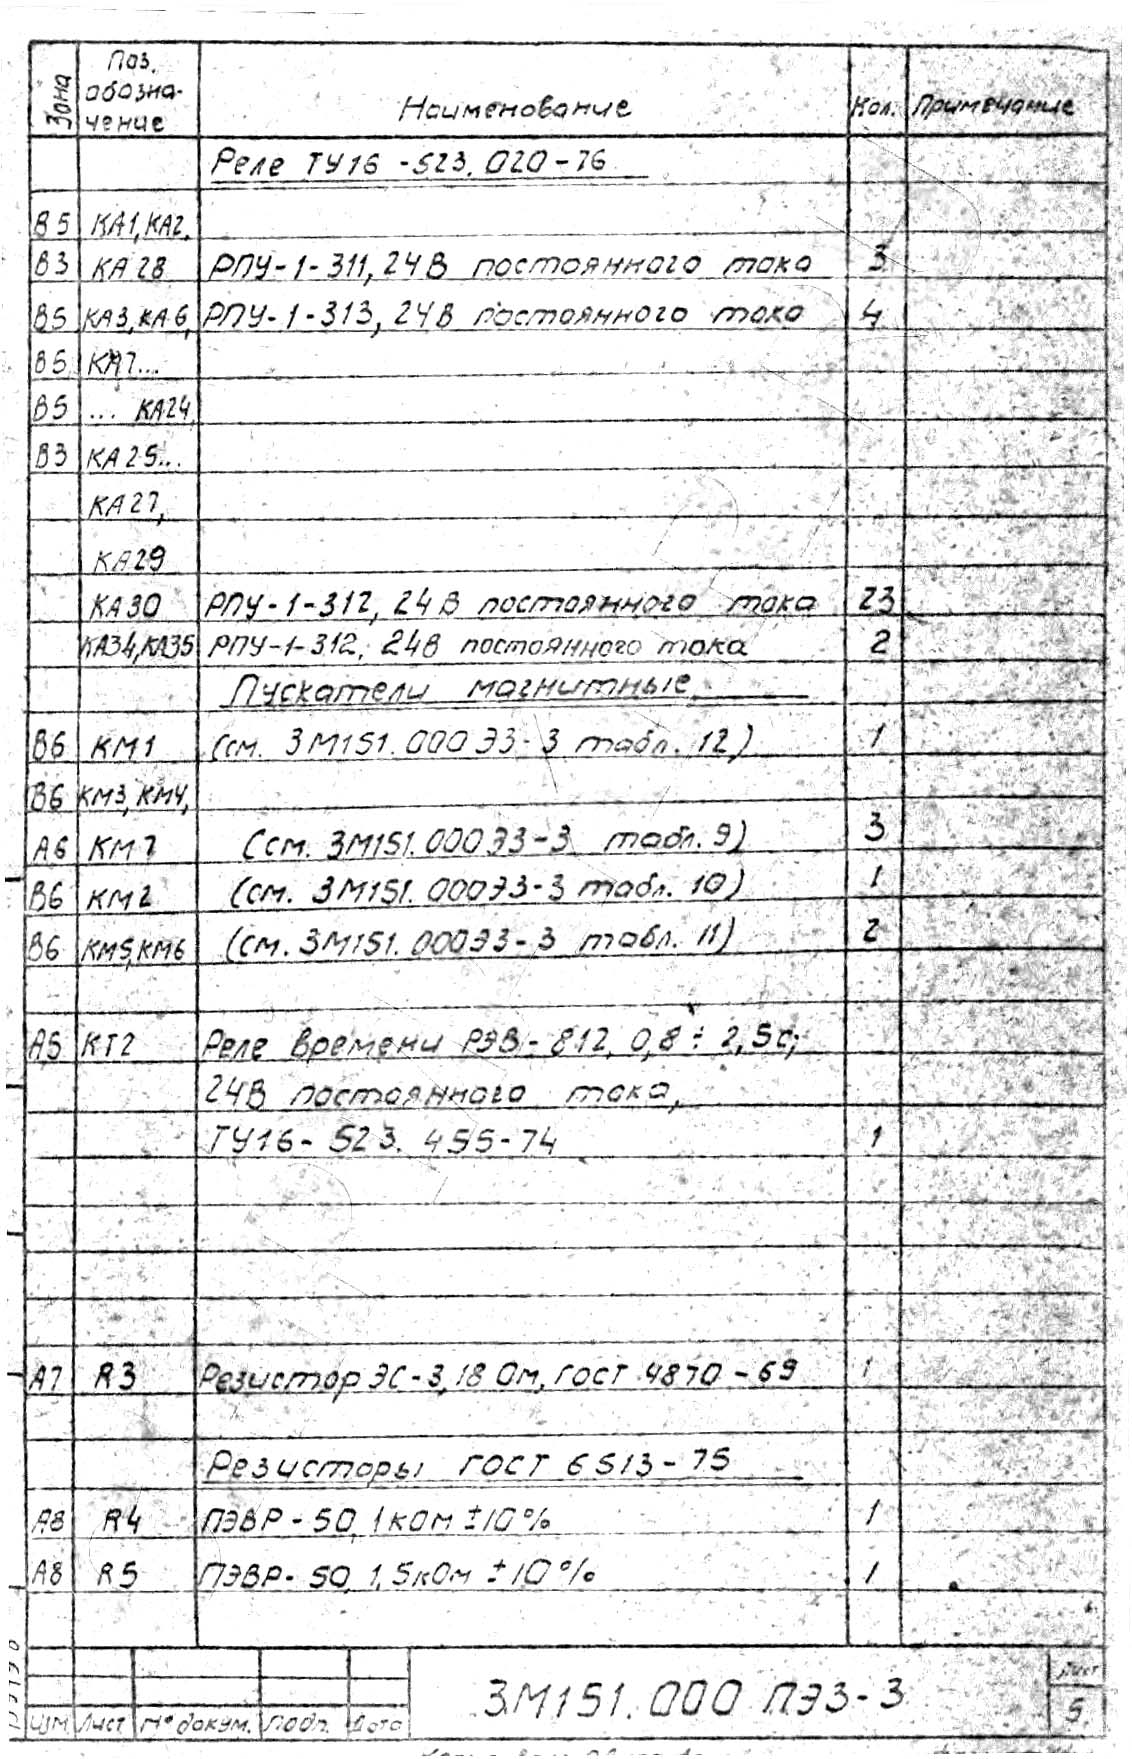 Зона
Поз. обозна-чение
Наименование
Кол.
Примечание
Реле ТУ16-523.020-76
В5 КА1, КА2,
В3 КА28 РПУ-1-311, 24В постоянного тока 3
В5 КА3, КА6, РПУ-1-313, 24В постоянного тока 4
В5 КА7...
В5 ... КА24,
В3 КА25...
КА27,
КА29
КА30 РПУ-1-312, 24В постоянного тока 23
КА34, КА35 РПУ-1-312, 24В постоянного тока 2
Пускатели магнитные
В6 КМ1 (см. 3М151.000Э3-3 табл. 12) 1
В6 КМ3, КМ4,
А6 КМ7 (см. 3М151.000Э3-3 табл. 9) 3
В6 КМ2 (см. 3М151.000Э3-3 табл. 10) 1
В6 КМ5, КМ6 (см. 3М151.000Э3-3 табл. 11) 2
А5 КТ2 Реле времени РЭВ-812, 0,8÷2,5с;
24В постоянного тока,
ТУ16-523.455-74 1
А7 R3 Резистор ЭС-3, 18 Ом, ГОСТ 4870-69 1
Резисторы ГОСТ 6513-75
А8 R4 ПЭВР-50, 1кОм ±10% 1
А8 R5 ПЭВР-50, 1,5кОм ±10% 1
Изм Лист № докум. Подп. Дата
3М151.000 ПЭ3-3
Лист
5